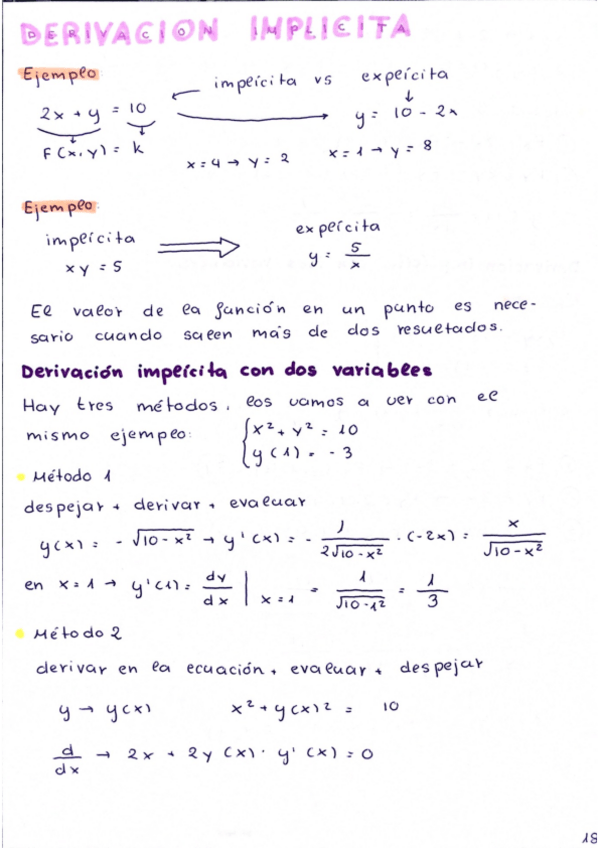 DERIVACION IMPLICITA
Ejemplo:
implícita vs explícita
2x + y = 10 → y = 10 - 2x
F(x,y) = k
x=4 → y = 2 x=1 → y = 8
Ejemplo:
implícita ⇒ explícita
xy = 5 y = 5/x
El valor de la función en un punto es nece-
sario cuando salen más de dos resultados.
Derivación implícita con dos variables
Hay tres métodos, los vamos a ver con el
mismo ejemplo: { x² + y² = 10
y(1) = -3
• Método 1
despejar + derivar + evaluar
y(x) = - √10-x² → y'(x) = - 1/2√10-x² · (-2x) = x/√10-x²
en x=1 → y'(1) = dy/dx | x=1 = 1/√10-1² = 1/3
• Método 2
derivar en la ecuación + evaluar + despejar
y → y(x) x² + y(x)² = 10
d/dx → 2x + 2y(x) · y'(x) = 0
18